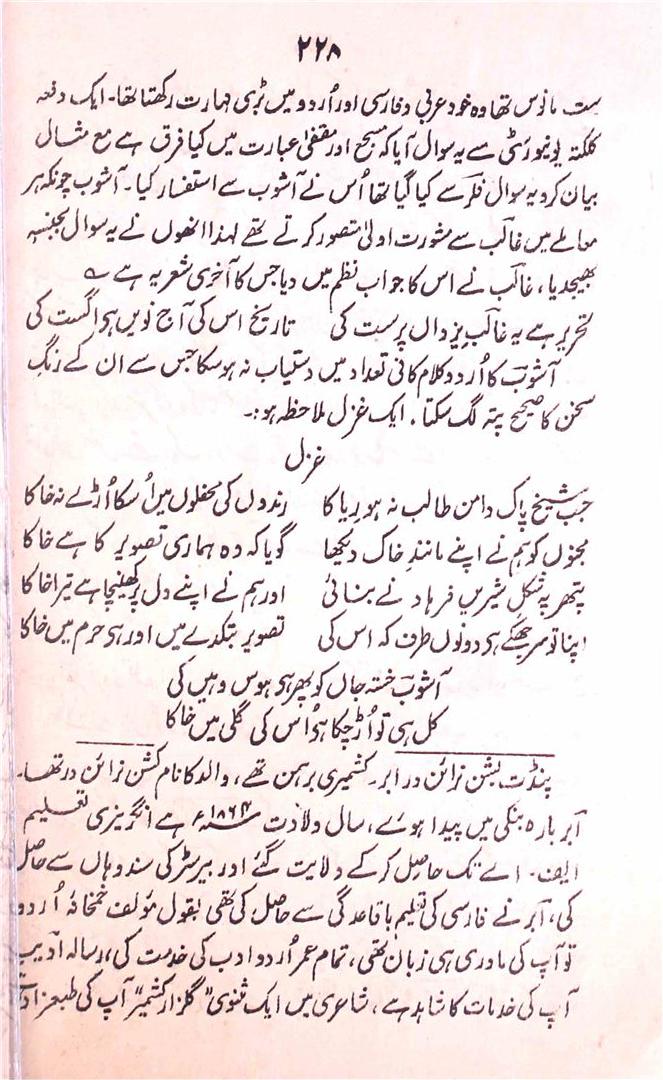 ۲۲۸
ست مانوس تھا وہ خود عربی و فارسی اور اُردو میں بڑی مہارت رکھتا تھا۔ ایک دفعہ
کلکتہ یونیورسٹی سے یہ سوال آیا کہ مسجع اور مقفیٰ عبارت میں کیا فرق ہے مع مثال
بیان کرو یہ سوال فلر سے کیا گیا تھا اُس نے آشوب سے استفسار کیا۔ آشوب چونکہ ہر
معاملے میں غالب سے مشورت اولیٰ تصور کرتے تھے لہذا انھوں نے یہ سوال بجنسہٖ
بھیجدیا، غالب نے اس کا جواب نظم میں دیا جس کا آخری شعر یہ ہے ؎
تحریر ہے یہ غالبِ یزداں پرست کی تاریخ اس کی آج نویں ہی اگست کی
آشوب کا اُردو کلام کافی تعداد میں دستیاب نہ ہوسکا جس سے ان کے رنگِ
سخن کا صحیح پتہ لگ سکتا۔ ایک غزل ملاحظہ ہو:۔
غزل
جب شیخ پاک دامن طالب نہ ہو ریا کا رندوں کی محفلوں میں اُسکا اُڑے نہ خاکا
مجنوں کو ہم نے اپنے مانندِ خاک دیکھا گویا کہ وہ ہماری تصویر کا ہے خاکا
پتھر پہ شکلِ شیریں فرہاد نے بنائی اور ہم نے اپنے دل پر کھینچا ہے تیرا خاکا
اپنا تو سر جھکے ہی دونوں طرف کہ اس کی تصویر بتکدے میں اور ہی حرم میں خاکا
آشوبِ خستہ جاں کو پھر ہی ہوس وہیں کی
کل ہی تو اُڑ چکا ہو اُس کی گلی میں خاکا
پنڈت بشن نرائن در ابر۔ کشمیری برہمن تھے، والد کا نام کشن نرائن در تھا۔
ابر بارہ بنکی میں پیدا ہوئے، سال ولادت سنہ ۱۸۶۴ء ہے انگریزی تعلیم
ایف۔ اے تک حاصل کرکے ولایت گئے اور بیرسٹر کی سند وہاں سے حاصل
کی، ابر نے فارسی کی تعلیم باقاعدگی سے حاصل کی تھی بقول مؤلف خمخانۂ اُردو
تو آپ کی مادری ہی زبان تھی، تمام عمر اُردو ادب کی خدمت کی، رسالہ ادیب
آپ کی خدمات کا شاہد ہے، شاعری میں ایک مثنوی "گلزار کشمیر" آپ کی طبعزاد